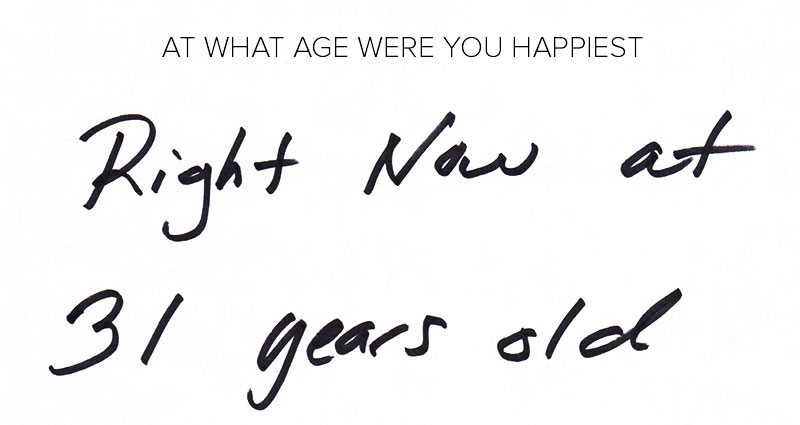 AT WHAT AGE WERE YOU HAPPIEST
Right Now at
31 years old